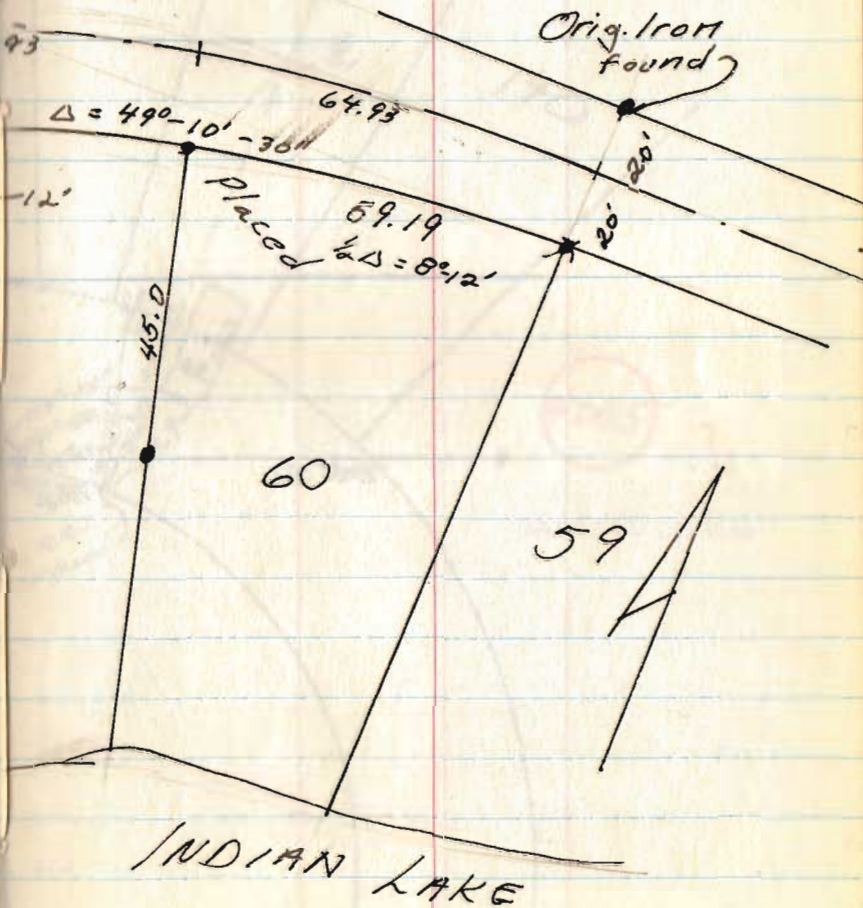 Orig. Iron
found
93
64.93
Δ = 49°-10'-30"
20'
-12'
Placed
59.19
20'
½Δ = 8°-12'
45.0
60
59
INDIAN LAKE